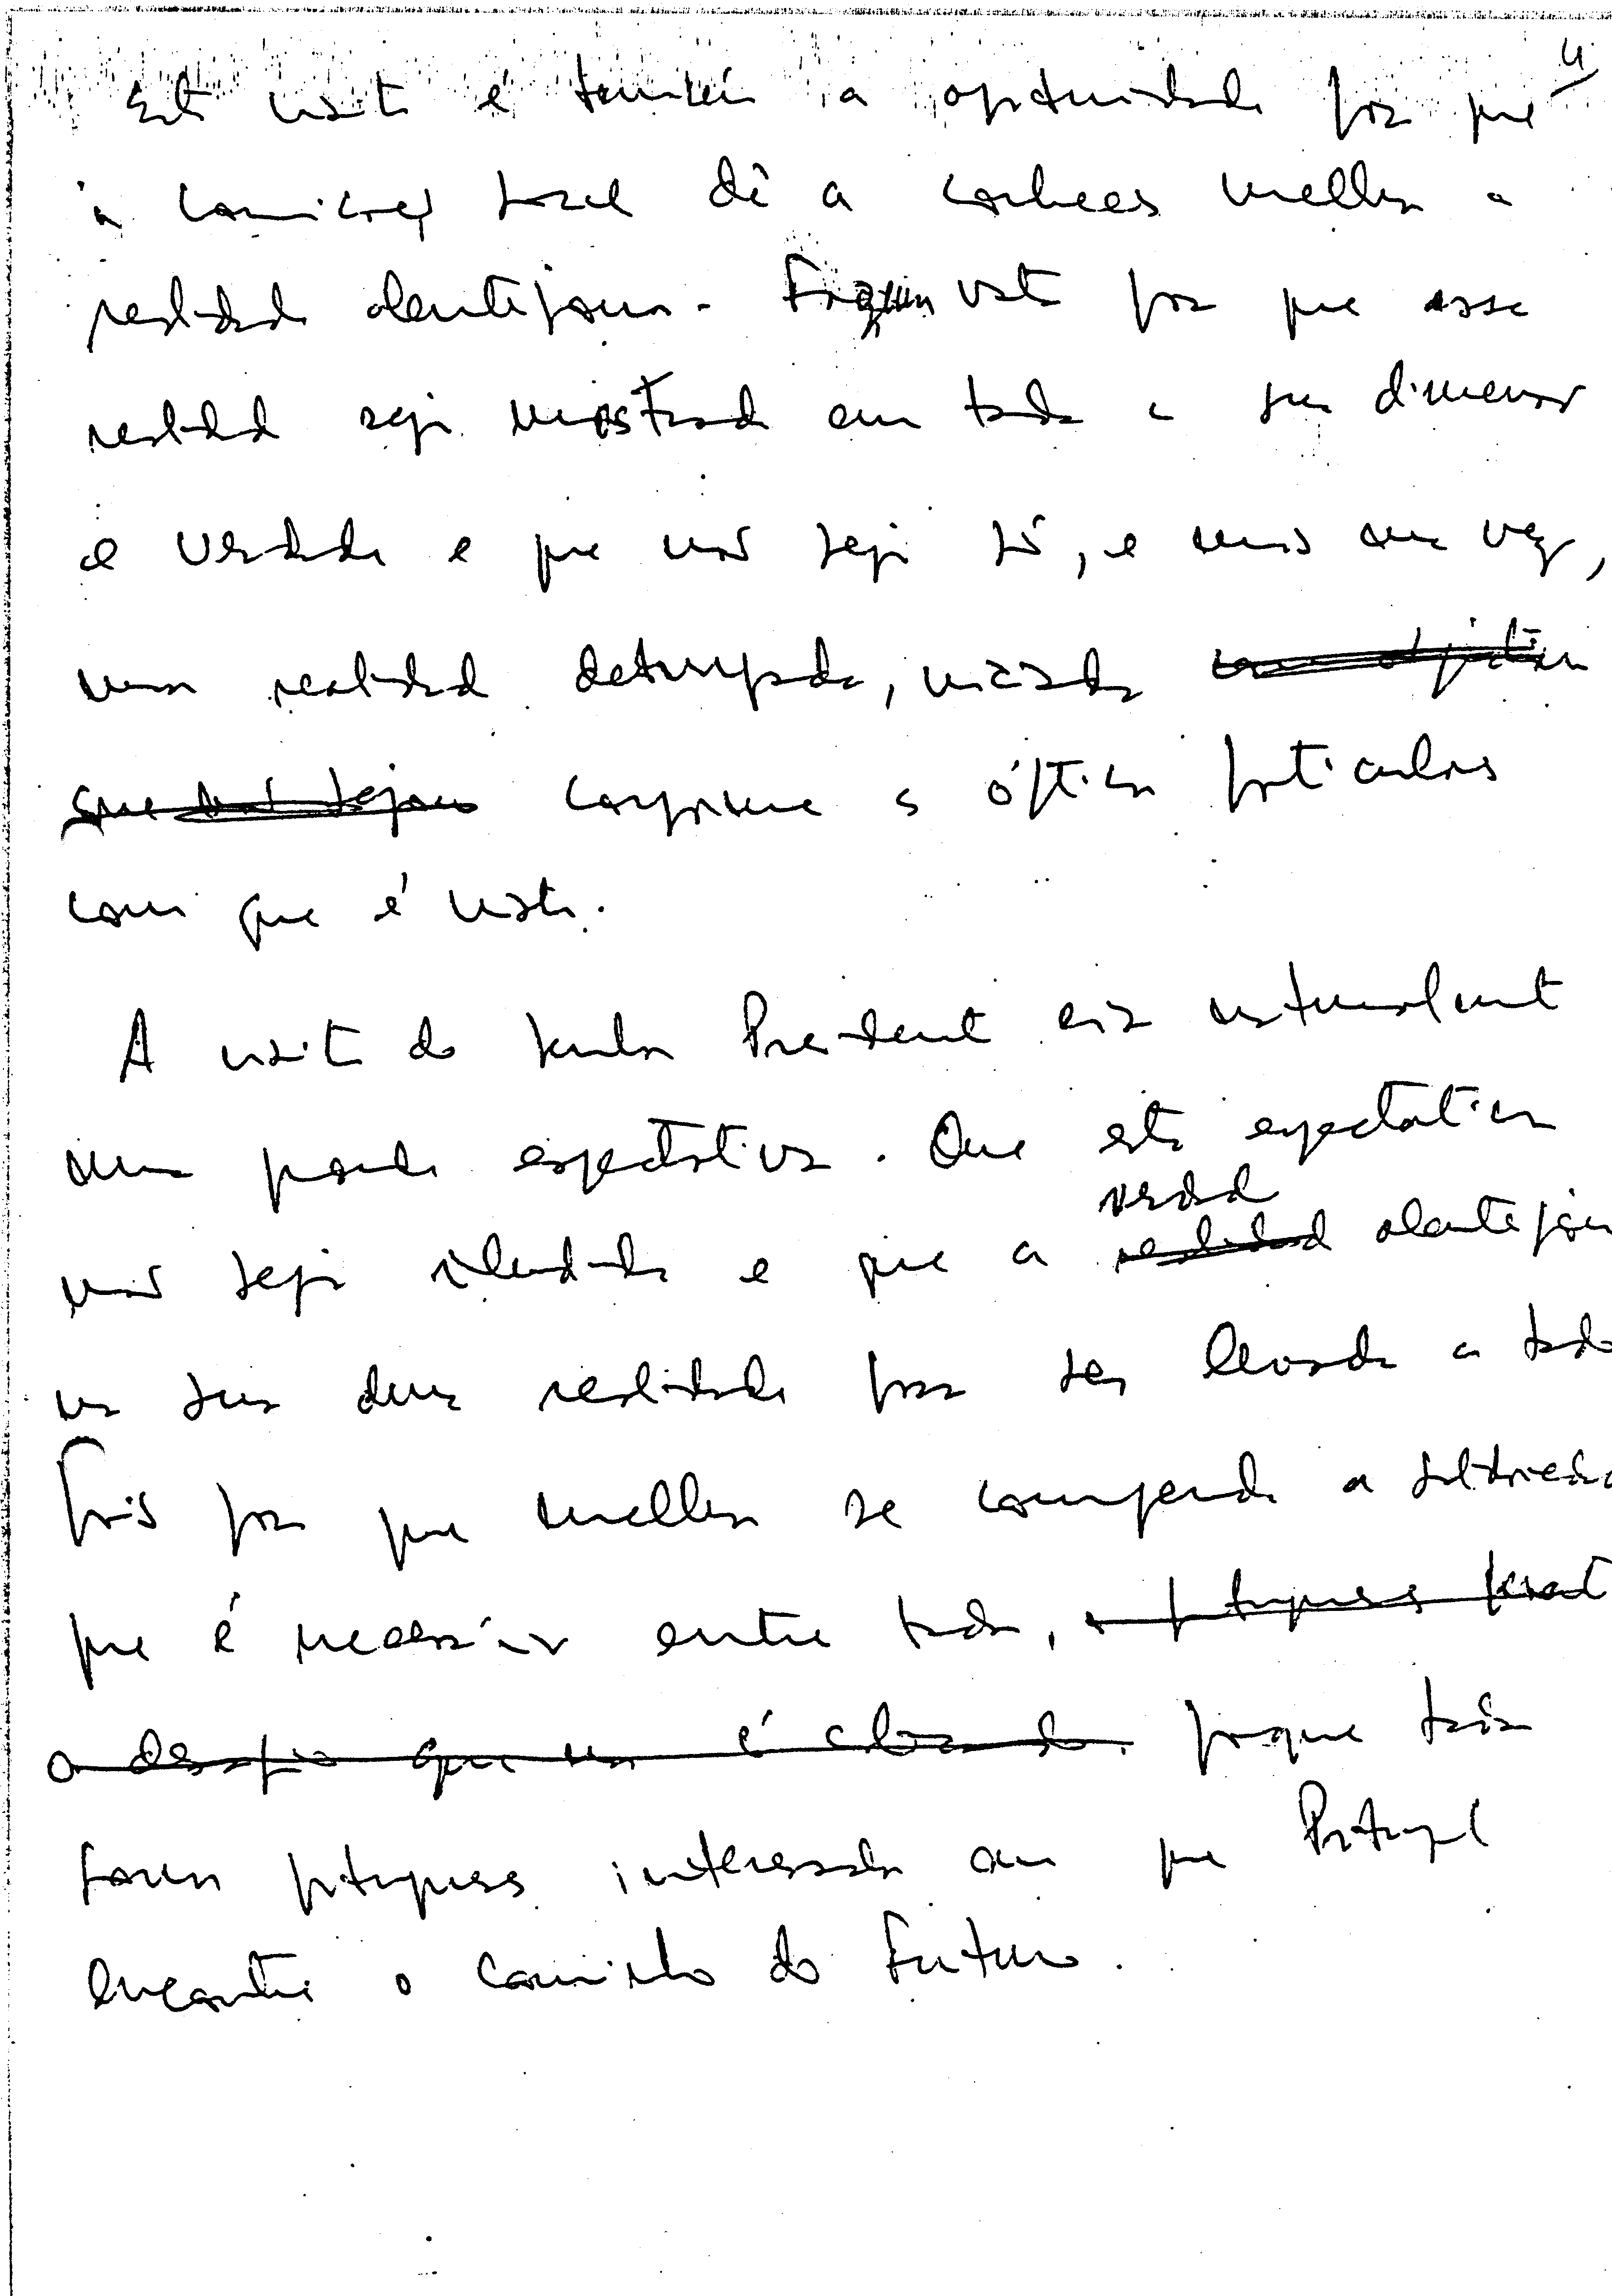 4
Esta visita é também a oportunidade para que
a comunicação social dê a conhecer melhor a
realidade alentejana. Fazemos votos para que essa
realidade seja mostrada em toda a sua dimensão
e verdade e que não seja só, e mais uma vez,
uma realidade deturpada, viciada
conforme as ópticas particulares
com que é vista.
A visita do Senhor Presidente cria naturalmente
uma grande expectativa. Que esta expectativa
verdade
não seja iludida e que a realidade alentejana
na sua dura realidade possa ser levada a todo
País para que melhor se compreenda a solidariedade
que é necessária entre todos, os portugueses
o desafio que nos é colocado. porque todos
somos portugueses interessados em que Portugal
encontre o caminho do futuro.